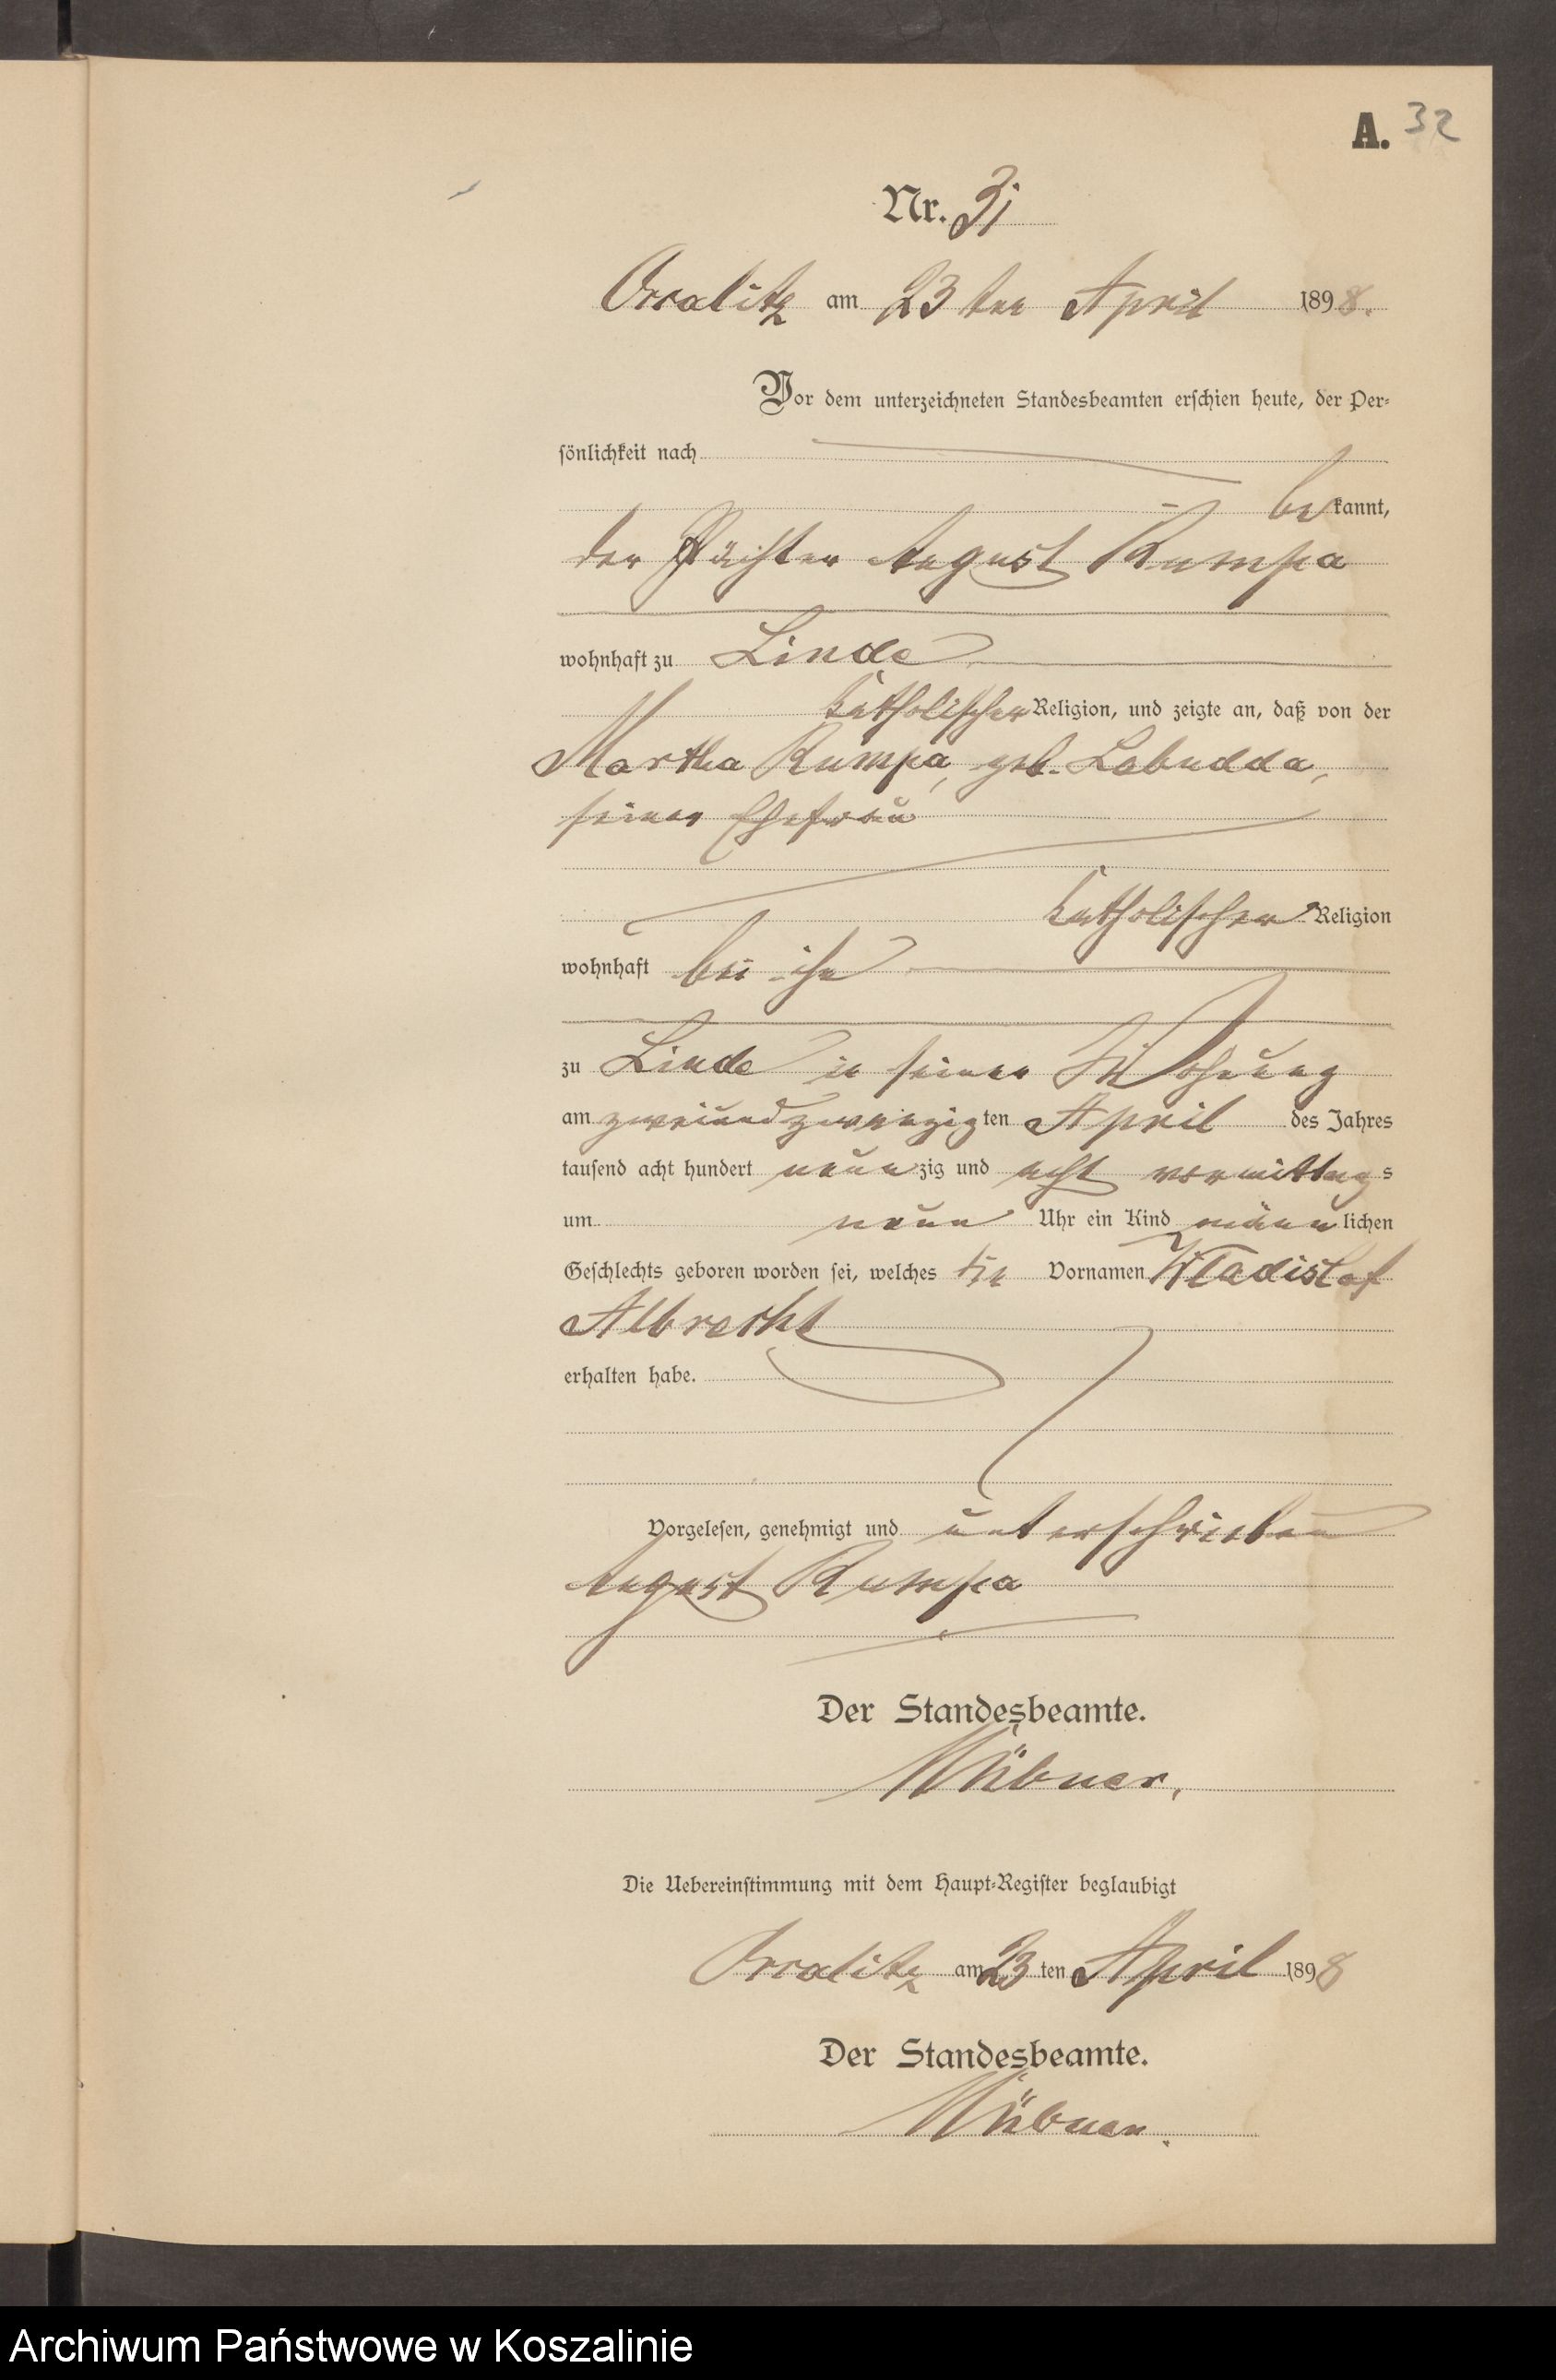 A. 32
Nr. 31
Orralitz am 23ten April 1898.
Vor dem unterzeichneten Standesbeamten erschien heute, der Per-
sönlichkeit nach
bekannt,
der Pächter August Kumpa
wohnhaft zu Linde
katholischer Religion, und zeigte an, daß von der
Martha Kumpa, geb. Labudda,
seiner Ehefrau
katholischer Religion
wohnhaft bei ihm
zu Linde in seiner Wohnung
am zweiundzwanzigten April des Jahres
tausend acht hundert neunzig und acht vormittags
um neun Uhr ein Kind männlichen
Geschlechts geboren worden sei, welches die Vornamen Wladislaf
Albrecht
erhalten habe.
Vorgelesen, genehmigt und unterschrieben
August Kumpa
Der Standesbeamte.
Hübner.
Die Uebereinstimmung mit dem Haupt-Register beglaubigt
Orralitz am 23ten April 1898
Der Standesbeamte.
Hübner.
Archiwum Państwowe w Koszalinie